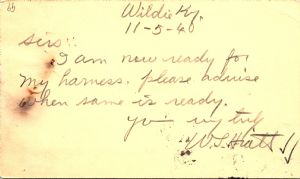 Wildie Ky.
11-5-40
Sirs:
I am now ready for
my harness. please advise
when same is ready.
W.S. Hiatt